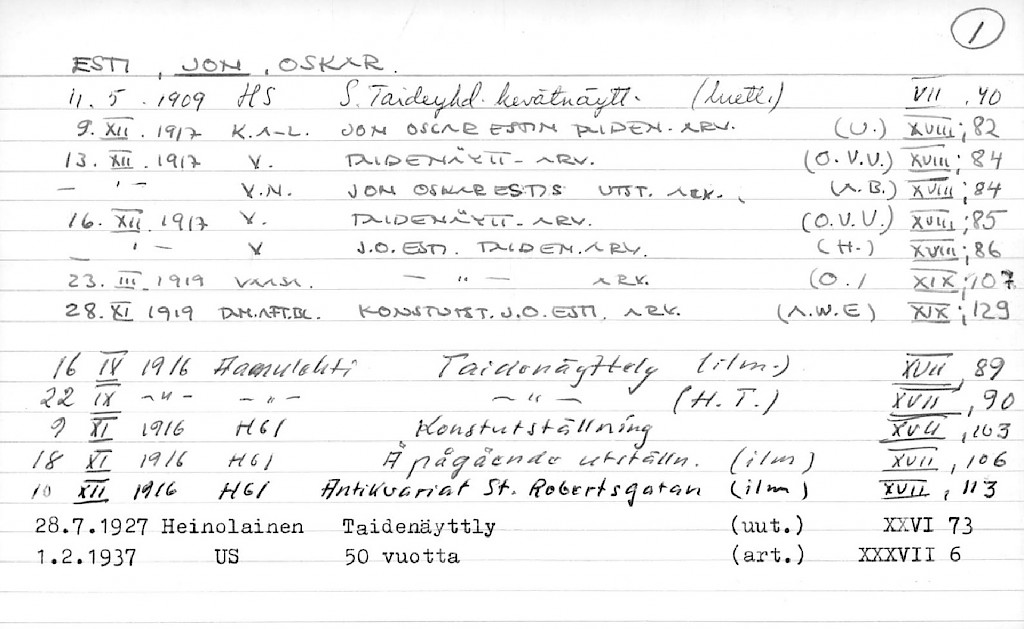 1
ESTI, JON, OSKAR.
11. 5. 1909 HS S. Taideyhd. kevätnäytt. (luett.) VII, 40
9. XII. 1917 K. A-L. JON OSCAR ESTIN TAIDEN. ARV. (U.) XVIII; 82
13. XII. 1917 V. TAIDENÄYTT- ARV. (O.V.V.) XVIII; 84
— " — V.N. JON OSKAR ESTIS UTST. ARK. (A.B.) XVIII; 84
16. XII. 1917 V. TAIDENÄYTT- ARV. (O.V.V.) XVIII; 85
— " — V J.O. ESTI. TAIDEN. ARV. (H.) XVIII; 86
23. III. 1919 — " — ARV. (O.) XIX; 107
28. XI 1919 D.M.AFT.BL. KONSTUTST. J.O. ESTI, ARV. (A.W.E) XIX; 129
16 IV 1916 Aamulehti Taidenäyttely (ilm.) XVII, 89
22 IX — " — — " — — " — (H.T.) XVII, 90
9 XI 1916 H6I Konstutställning XVII, 103
18 XI 1916 H6I Å pågående utställn. (ilm) XVII, 106
10 XII 1916 H6I Antikvariat St. Robertsgatan (ilm) XVII, 113
28.7.1927 Heinolainen Taidenäyttly (uut.) XXVI 73
1.2.1937 US 50 vuotta (art.) XXXVII 6